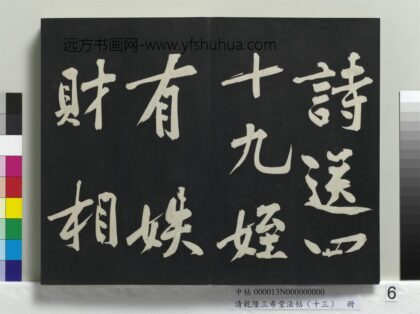 远方书画网-www.yfshuhua.com
詩送四
十九姪
有
財相
中帖 000013N000000000
清乾隆三希堂法帖（十三） 冊
6